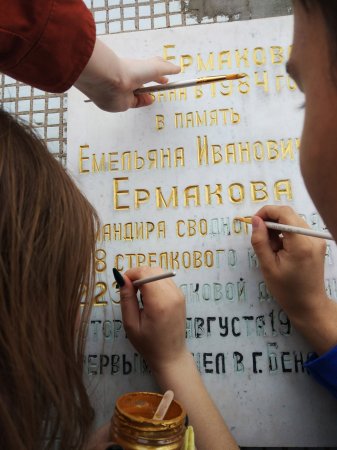 Ермакова
в 1984 го
в память
Емельяна Иванович
Ермакова
мандира сводно
8 стрелкового
ковой д
августа 19
первым
в г. Бен